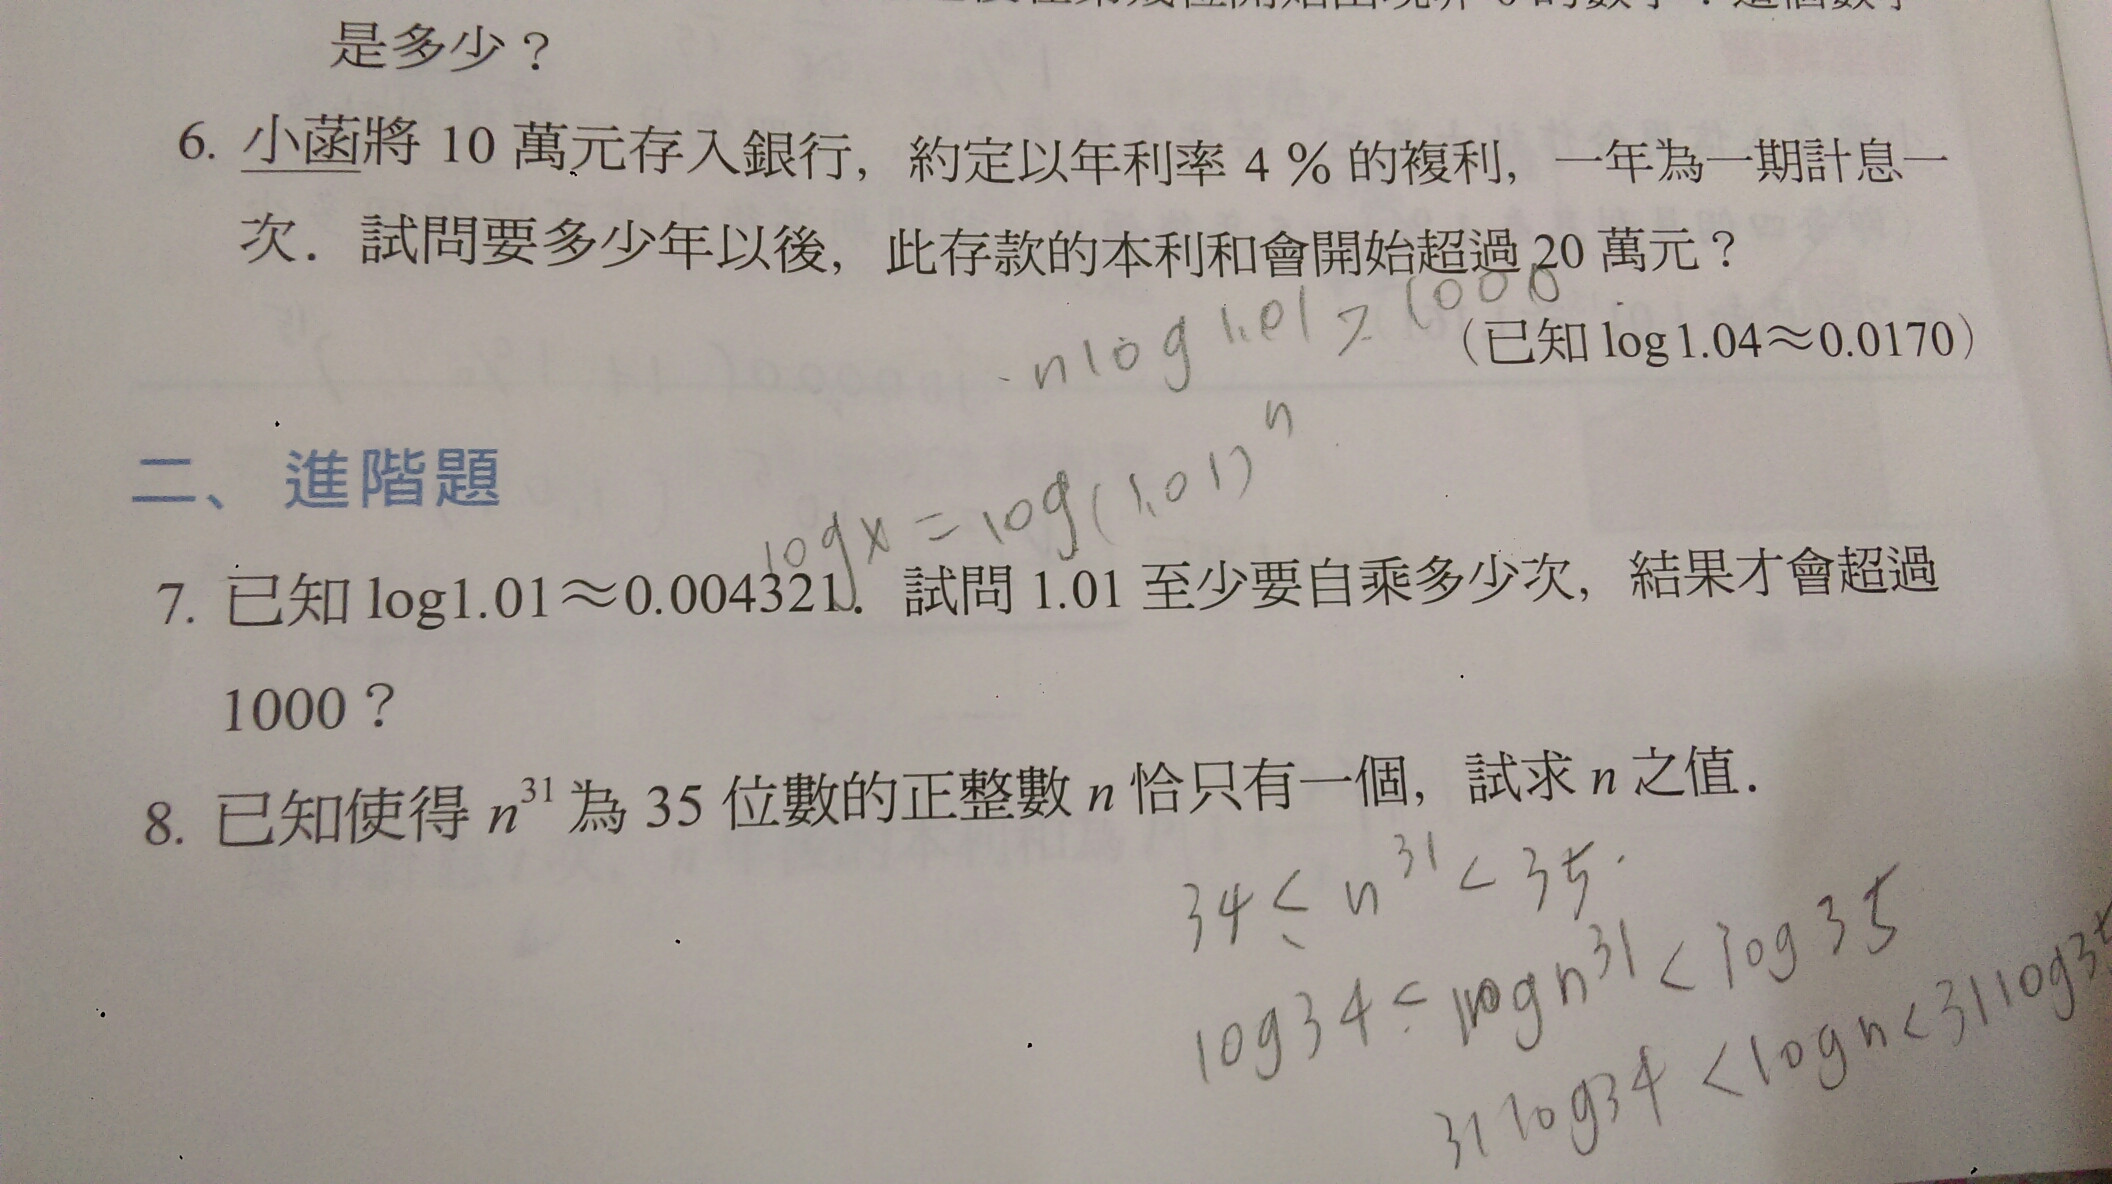 是多少？
6. 小菡將 10 萬元存入銀行，約定以年利率 4 % 的複利，一年為一期計息一
次．試問要多少年以後，此存款的本利和會開始超過 20 萬元？
nlog1.01 ≥ 1000
（已知 log1.04≈0.0170）
二、進階題
logx = log(1.01)ⁿ
7. 已知 log1.01≈0.004321．試問 1.01 至少要自乘多少次，結果才會超過
1000？
8. 已知使得 n³¹ 為 35 位數的正整數 n 恰只有一個，試求 n 之值．
34 ≤ n³¹ < 35
log34 ≤ logn³¹ < log35
31log34 < logn < 31log35